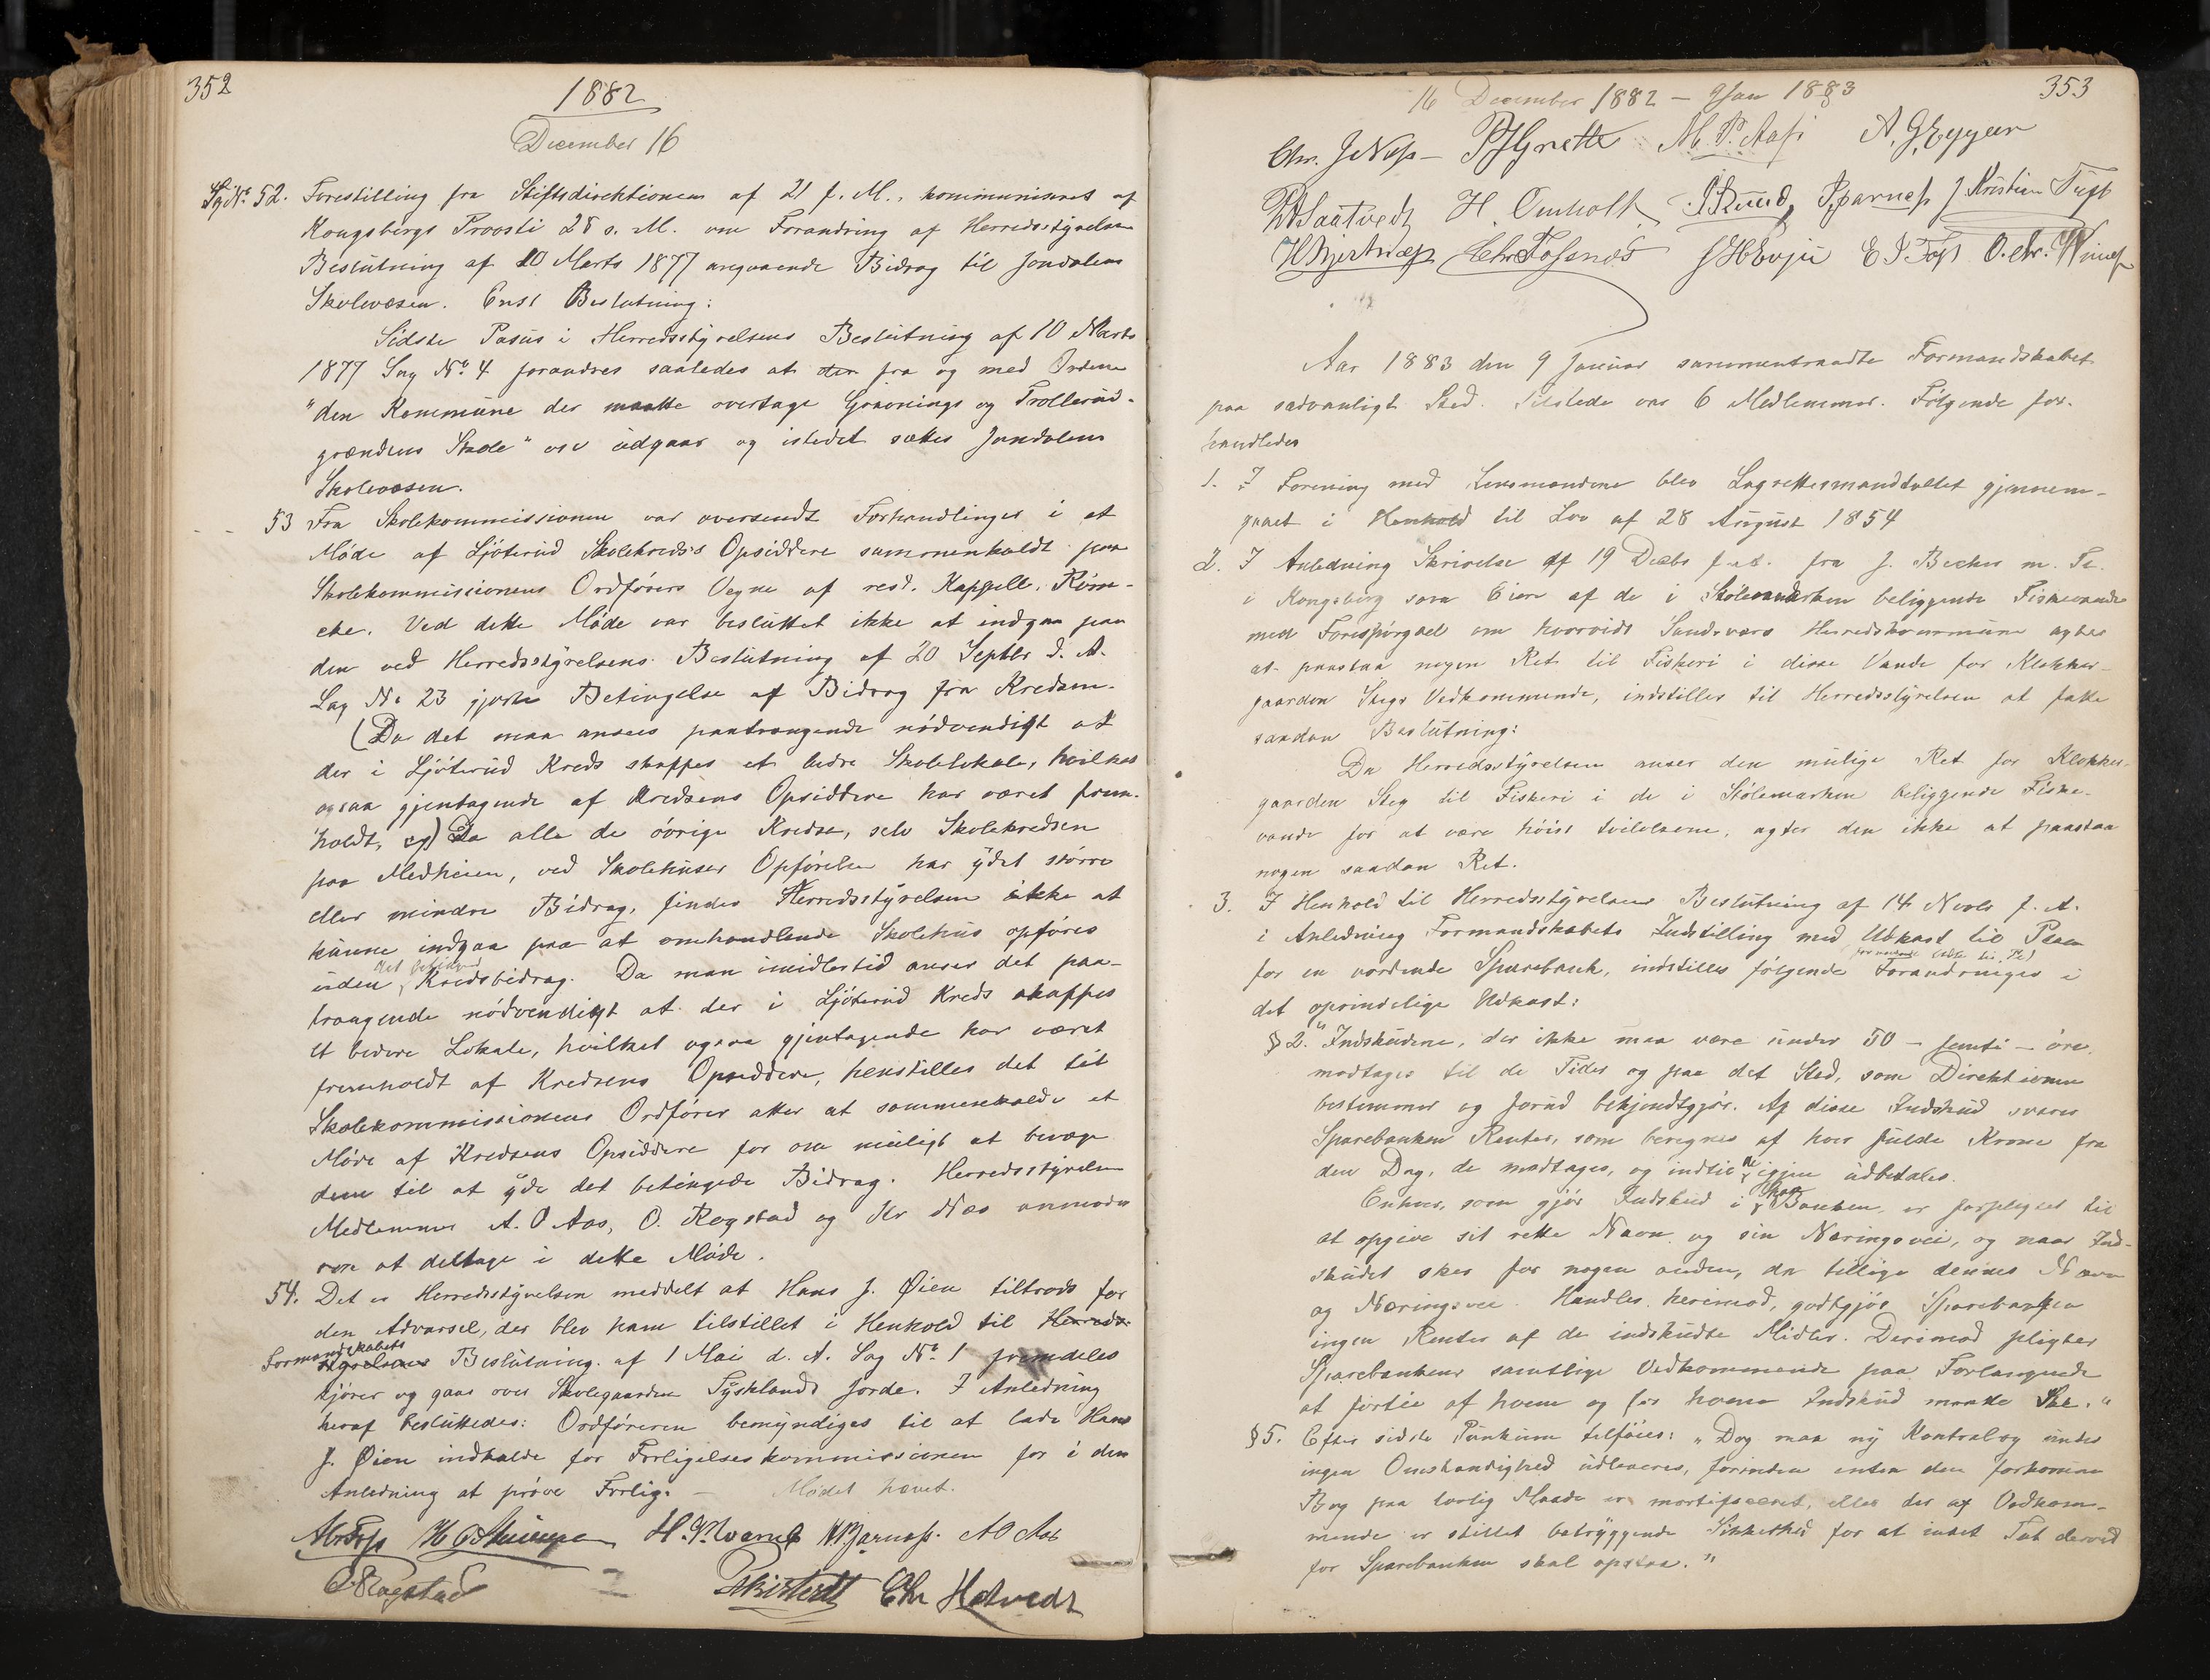 352
1882
December 16
Sag No. 52. Forestilling fra Stiftsdirektionen af 21 f. M., kommuniseret af
Kongsbergs Provsti 28 s. M. om Forandring af Herredsstyrelsens
Beslutning af 10 Marts 1877 angaaende Bidrag til Jondalens
Skolevæsen. Enst Beslutning:
Sidste Pasus i Herredsstyrelsens Beslutning af 10 Marts
1877 Sag No. 4 forandres saaledes at den fra og med Ordene
"den Kommune der maatte overtage Gravnings og Trollerud-
grændens Skole" osv udgaar og istedet sættes Jondalens
Skolevæsen.
53 Fra Skolekommissionen var oversendt Forhandlinger i et
Møde af Ljøterud Skolekreds's Opsiddere sammenholdt paa
Skolekommissionens Ordførers Vegne af resd. Kappellan Røm-
cke. Ved dette Møde var besluttet ikke at indgaa paa
den ved Herredsstyrelsens Beslutning af 20 Septbr d. A.
Sag No 23 gjorte Betingelse af Bidrag fra Kredsen.
(Da det maa ansees paatrængende nødvendigt at
der i Ljøterud Kreds skaffes et bedre Skolelokale, hvilket
ogsaa gjentagende af Kredsens Opsiddere har været frem-
holdt, og) Da alle de øvrige Kredse, selv Skolekredsen
paa Medheien, ved Skolehuses Opførelse har ydet større
eller mindre Bidrag, finder Herredsstyrelsen ikke at
kunne indgaa paa at omhandlende Skolehus opføres
uden Kredsbidrag. Da man imidlertid anser det paa-
trængende nødvendigt at der i Ljøterud Kreds skaffes
et bedre Lokale, hvilket ogsaa gjentagende har været
fremholdt af Kredsens Opsiddere, henstilles det til
Skolekommissionens Ordfører atter at sammenkalde et
Møde af Kredsens Opsiddere for om muligt at bevæge
dem til at yde det betingede Bidrag. Herredsstyrelsens
Medlemmer A. O Aas, O. Rogstad og Kr Næs anmodes
om at deltage i dette Møde.
54. Det er Herredsstyrelsen meddelt at Hans J. Øien tiltrods for
den Advarsel, der blev ham tilstillet i Henhold til Herreds-
Formandskabets
styrelsens Beslutning af 1 Mai d. A. Sag No. 1 fremdeles
kjører og gaar over Skolegaarden Tysklands Jorde. I Anledning
heraf besluttedes: Ordføreren bemyndiges til at lade Hans
J. Øien indkalde for Forligelseskommissionen for i den
Anledning at prøve Forlig. — Mødet hævet.
A O Aas
O Rogstad Chr Hotvedt
353
16 December 1882 — 9 Jan 1883
H. Omholt J Ruud J. Kristian Tuft
Aar 1883 den 9 Januar sammentraadte Formandskabet
paa sædvanligt Sted. Tilstede var 6 Medlemmer. Følgende for-
handledes
1. I Forening med Lensmændene blev Lagrettesmandtallet gjennem-
gaaet i Henhold til Lov af 28 August 1854
2. I Anledning Skrivelse af 19 Decbr f. A. fra J. Becker m. Fl.
i Kongsberg som Eiere af de i Stølemarken beliggende Fiskevande
med Forespørgsel om hvorvidt Sandsværs Herredskommune agter
at paastaa nogen Ret til Fiskeri i disse Vande for Klokker-
gaarden Stegs Vedkommende, indstilles til Herredsstyrelsen at fatte
saadan Beslutning:
Da Herredsstyrelsen anser den mulige Ret for Klokker-
gaarden Steg til Fiskeri i de i Stølemarken beliggende Fiske-
vande for at være høist tvilelsom, agter den ikke at paastaa
nogen saadan Ret.
3. I Henhold til Herredsstyrelsens Beslutning af 14 Novbr f. A.
i Anledning Formandskabets Indstilling med Udkast til Plan
for en vordende Sparebank, indstilles følgende Forandringer i
det oprindelige Udkast:
§ 2. "Indskudene, der ikke maa være under 50 — femti — øre,
modtages til de Tider og paa det Sted, som Direktionen
bestemmer og forud bekjendtgjør. Af disse Indskud svarer
Sparebanken Renter, som beregnes af hver fulde Krone fra
den Dag, de modtages, og indtil de igjen udbetales.
Enhver, som gjør Indskud i Banken, er forpligtet til
at opgive sit rette Navn og sin Næringsvei, og naar Ind-
skudet sker for nogen anden, da tillige dennes Navn
og Næringsvei. Handles herimod, godtgjør Sparebanken
ingen Renter af de indskudte Midler. Derimod pligter
Sparebankens samtlige Vedkommende paa Forlangende
at fortie af hvem og for hvem Indskud maatte ske."
§ 5. Efter sidste Punktum tilføies: "Dog maa ny Kontrabog under
ingen Omstændighed udleveres, forinden enten den forkomne
Bog paa lovlig Maade er mortifiseret, eller der af Vedkom-
mende er stillet betryggende Sikkerhed for at intet Tab derved
for Sparebanken skal opstaa."